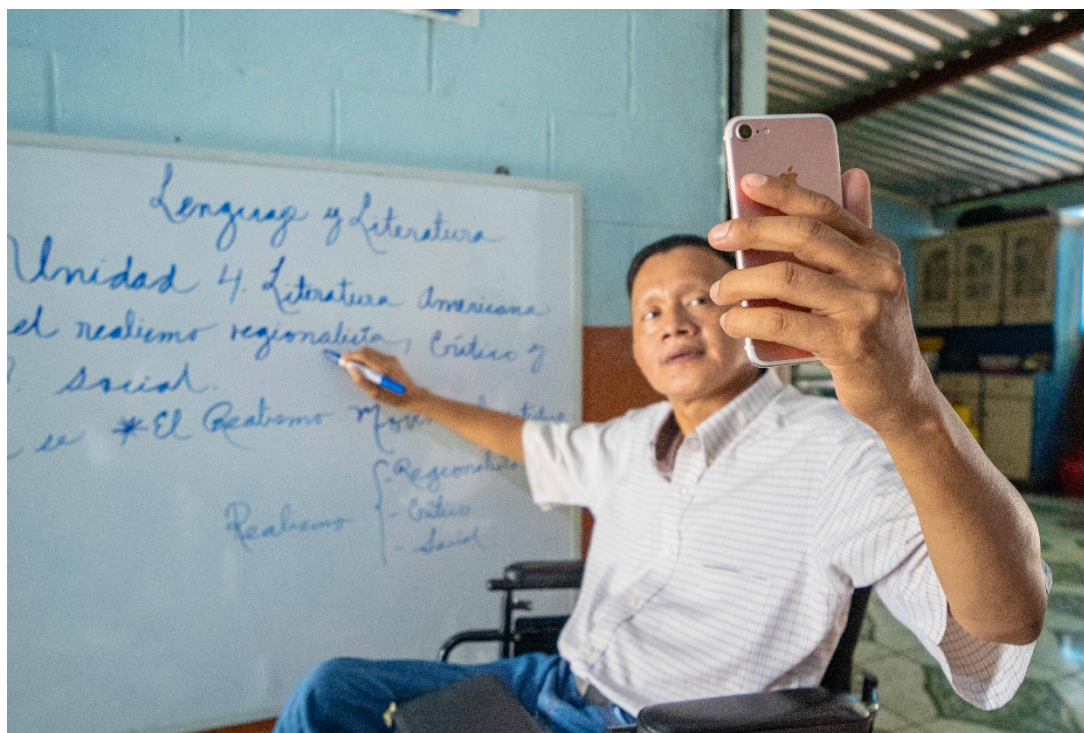 Lenguaje y Literatura
Unidad 4. Literatura Americana
el realismo regionalista, Crítico y
social.
se * El Realismo
Regionalista
Realismo - Crítico
- Social.